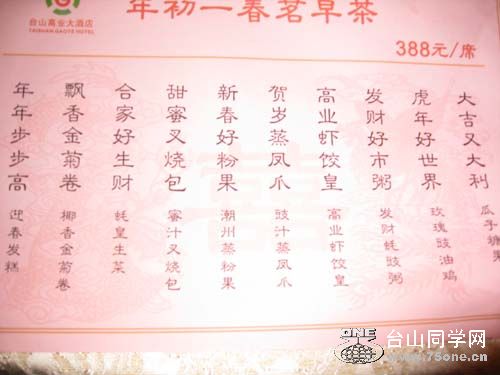 台山高业大酒店
TAISHAN GAOYE HOTEL
年初一春茗早茶
388元/席
大吉又大利 瓜子糖果
虎年好世界 玫瑰豉油鸡
发财好市粥 发财蚝豉粥
高业虾饺皇 高业虾饺皇
贺岁蒸凤爪 豉汁蒸凤爪
新春好粉果 潮州蒸粉果
甜蜜叉烧包 蜜汁叉烧包
合家好生财 蚝皇生菜
飘香金菊卷 椰香金菊卷
年年步步高 迎春发糕
囍
ONE 台山同学网
www.75one.cn